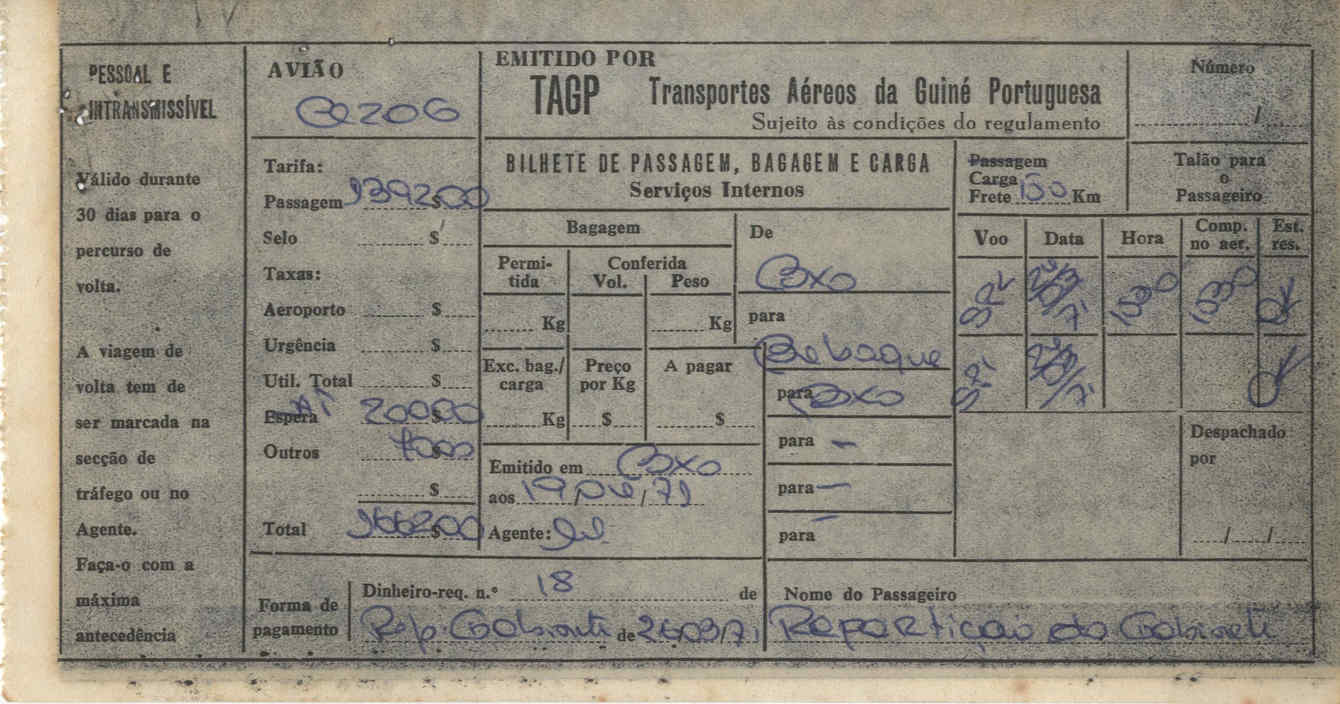 PESSOAL E
INTRANSMISSÍVEL
Válido durante
30 dias para o
percurso de
volta.
A viagem de
volta tem de
ser marcada na
secção de
tráfego ou no
Agente.
Faça-o com a
máxima
antecedência
AVIÃO
Tarifa:
Passagem 939200
Selo $
Taxas:
Aeroporto $
Urgência $
Util. Total $
Espera 20000
Outros
$
Total 966200
EMITIDO POR
TAGP Transportes Aéreos da Guiné Portuguesa
Sujeito às condições do regulamento
Número
/
BILHETE DE PASSAGEM, BAGAGEM E CARGA
Serviços Internos
Passagem
Carga
Frete 150 Km
Talão para
o
Passageiro
Bagagem
Permi-
tida
Conferida
Vol. Peso
Kg Kg
Exc. bag./
carga
Preço
por Kg
A pagar
Kg $ $
De
Bxo
para
Bubaque
para Bxo
para —
para —
para —
Voo Data Hora Comp.
no aer. Est.
res.
1030 1030 OK
OK
Despachado
por
/ /
Emitido em Bxo
aos 19
Agente:
Forma de
pagamento
Dinheiro-req. n.º 18 de
Rep. Gabinete de
Nome do Passageiro
Repartição do Gabinete